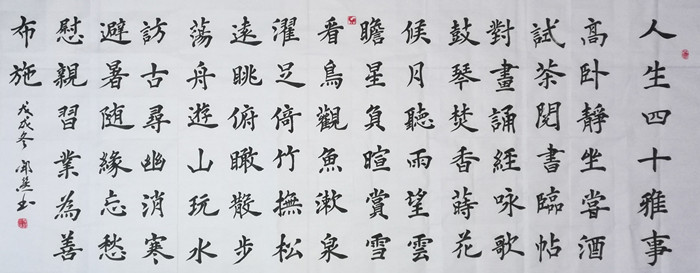 人生四十雅事
高卧靜坐嘗酒
試茶閱書臨帖
對畫誦經咏歌
鼓琴焚香蒔花
候月聽雨望雲
瞻星負暄賞雪
看鳥觀魚漱泉
濯足倚竹撫松
遠眺俯瞰散步
蕩舟遊山玩水
訪古尋幽消寒
避暑随緣忘愁
慰親習業為善
布施
戊戌冬 书